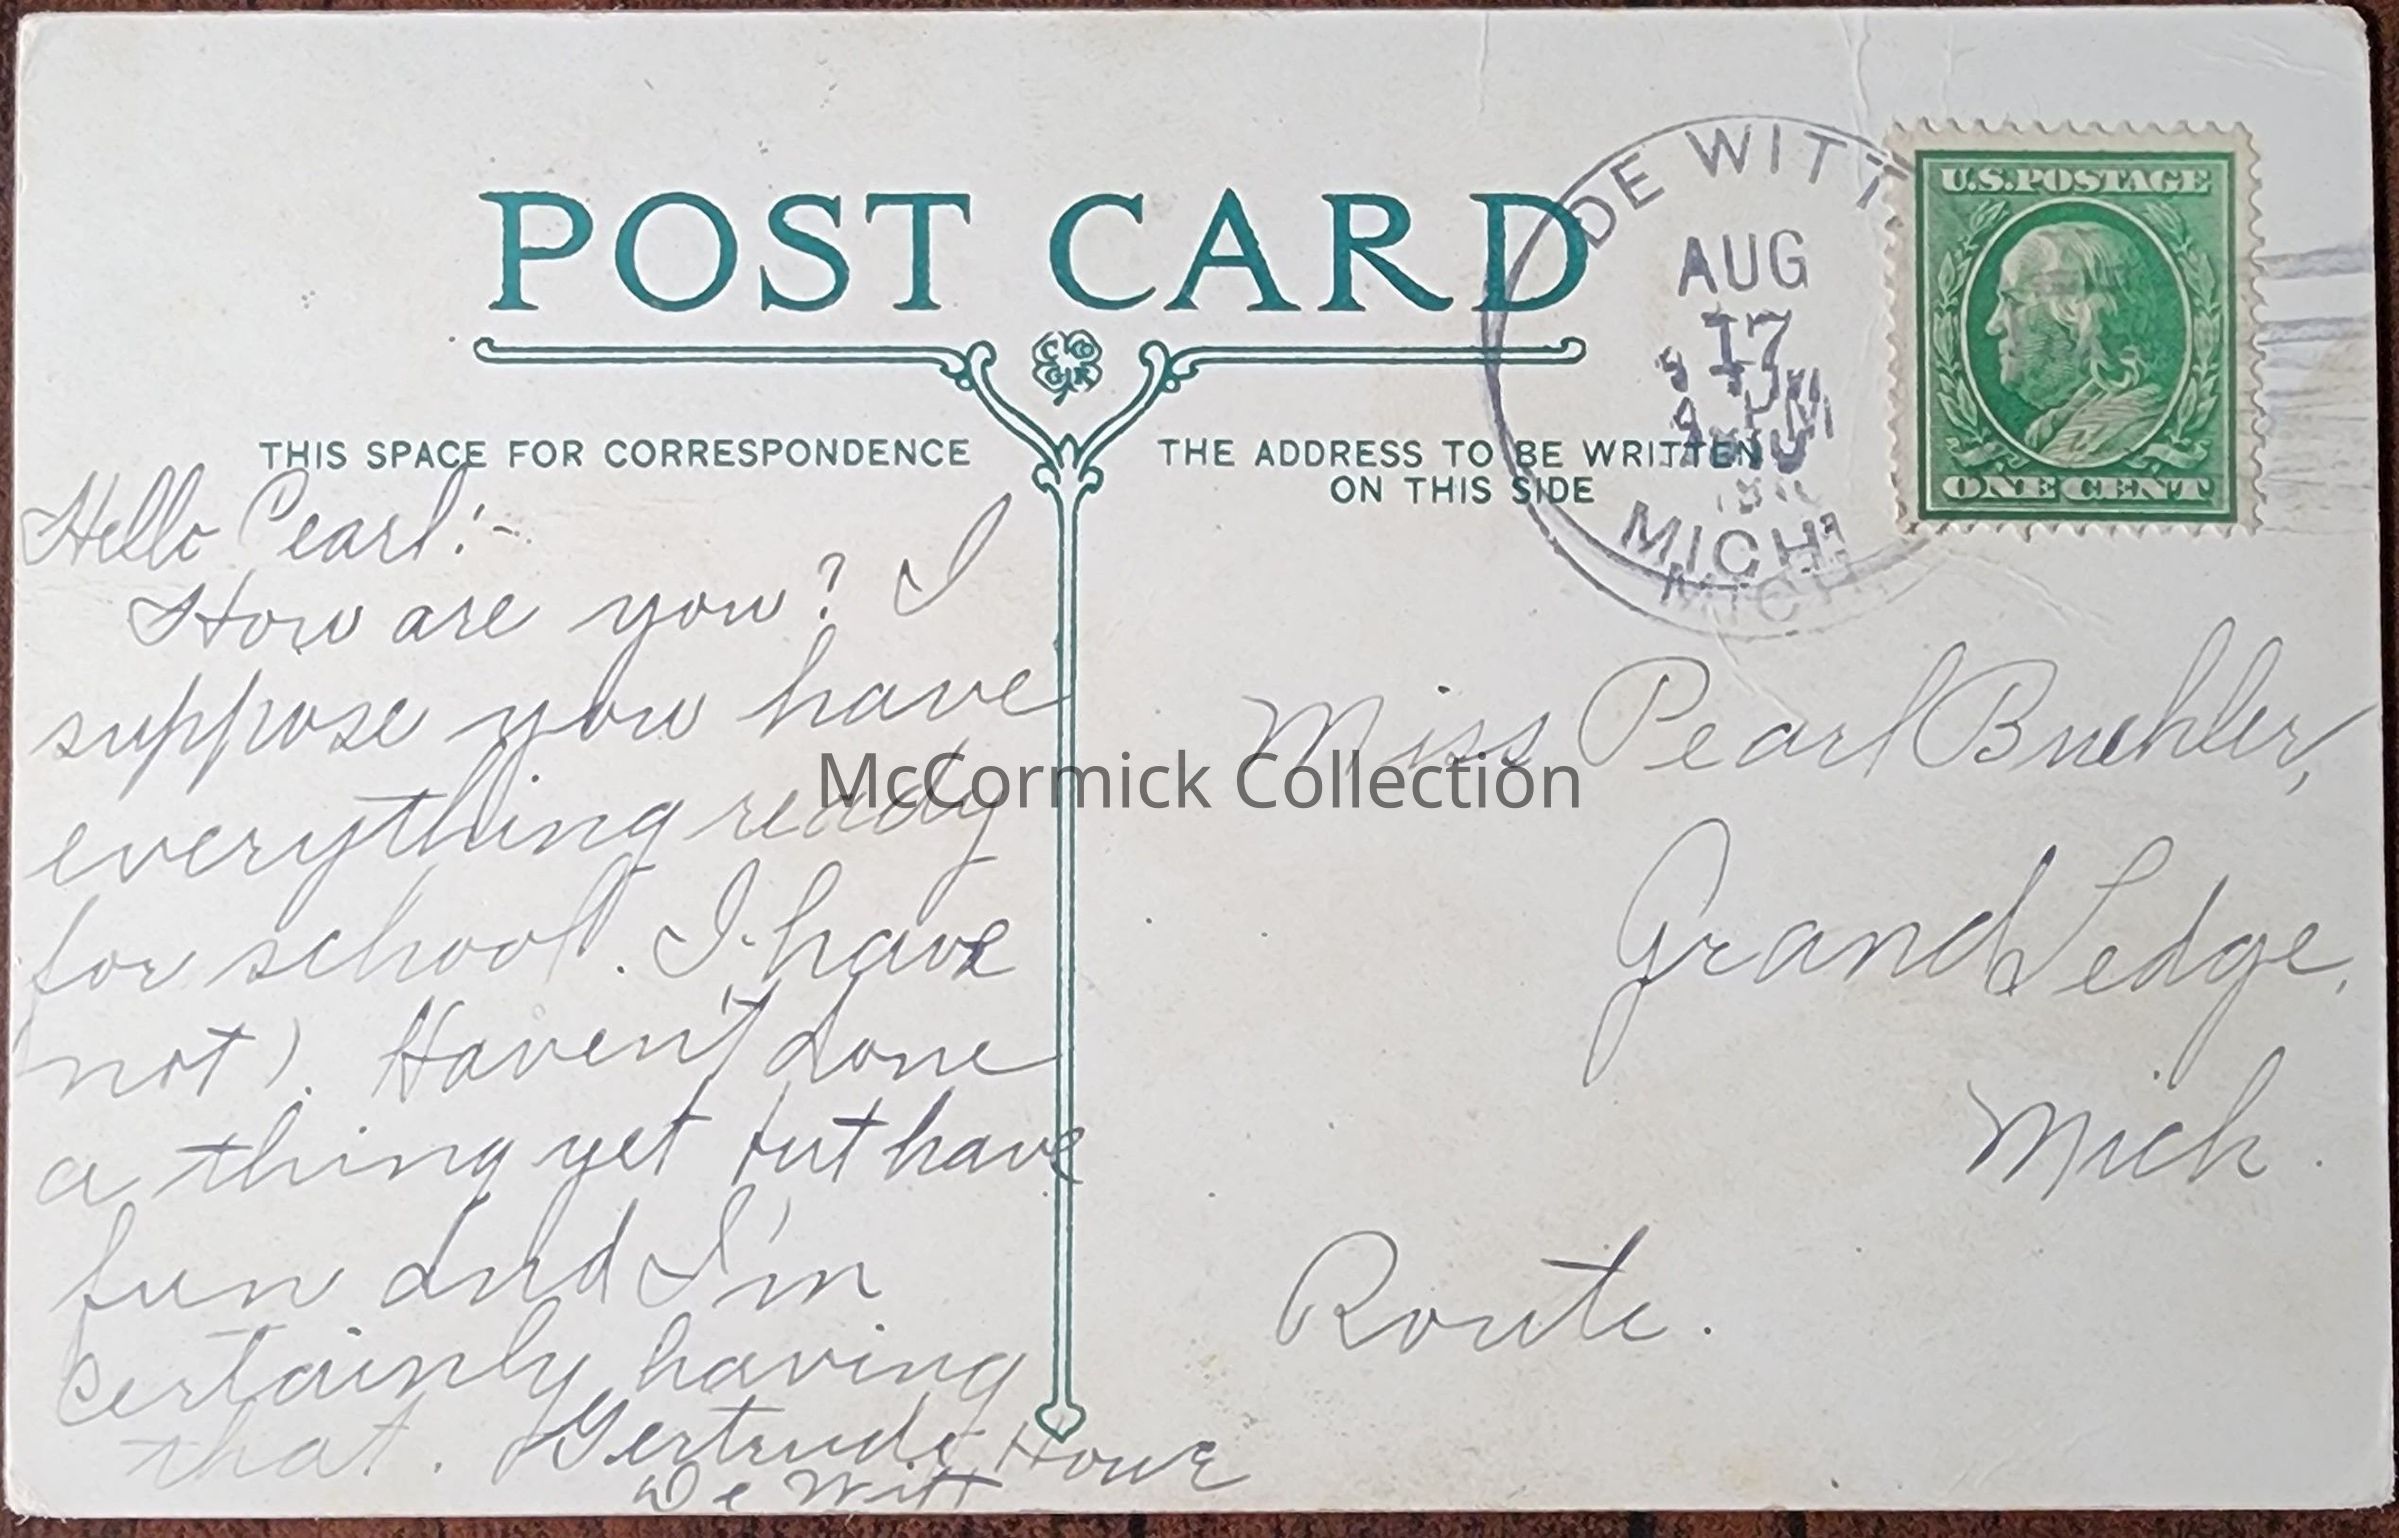 POST CARD
THIS SPACE FOR CORRESPONDENCE
THE ADDRESS TO BE WRITTEN
ON THIS SIDE
DE WITT
AUG
17
PM
MICH
MICH
U.S. POSTAGE
ONE CENT
Hello Pearl:-
How are you? I
suppose you have
everything ready
for school. I have
not). Haven't done
a thing yet but have
fun and I'm
certainly having
that. Gertrude Howe
De Witt
Miss Pearl Buehler,
Grand Ledge,
Mich.
Route.
McCormick Collection